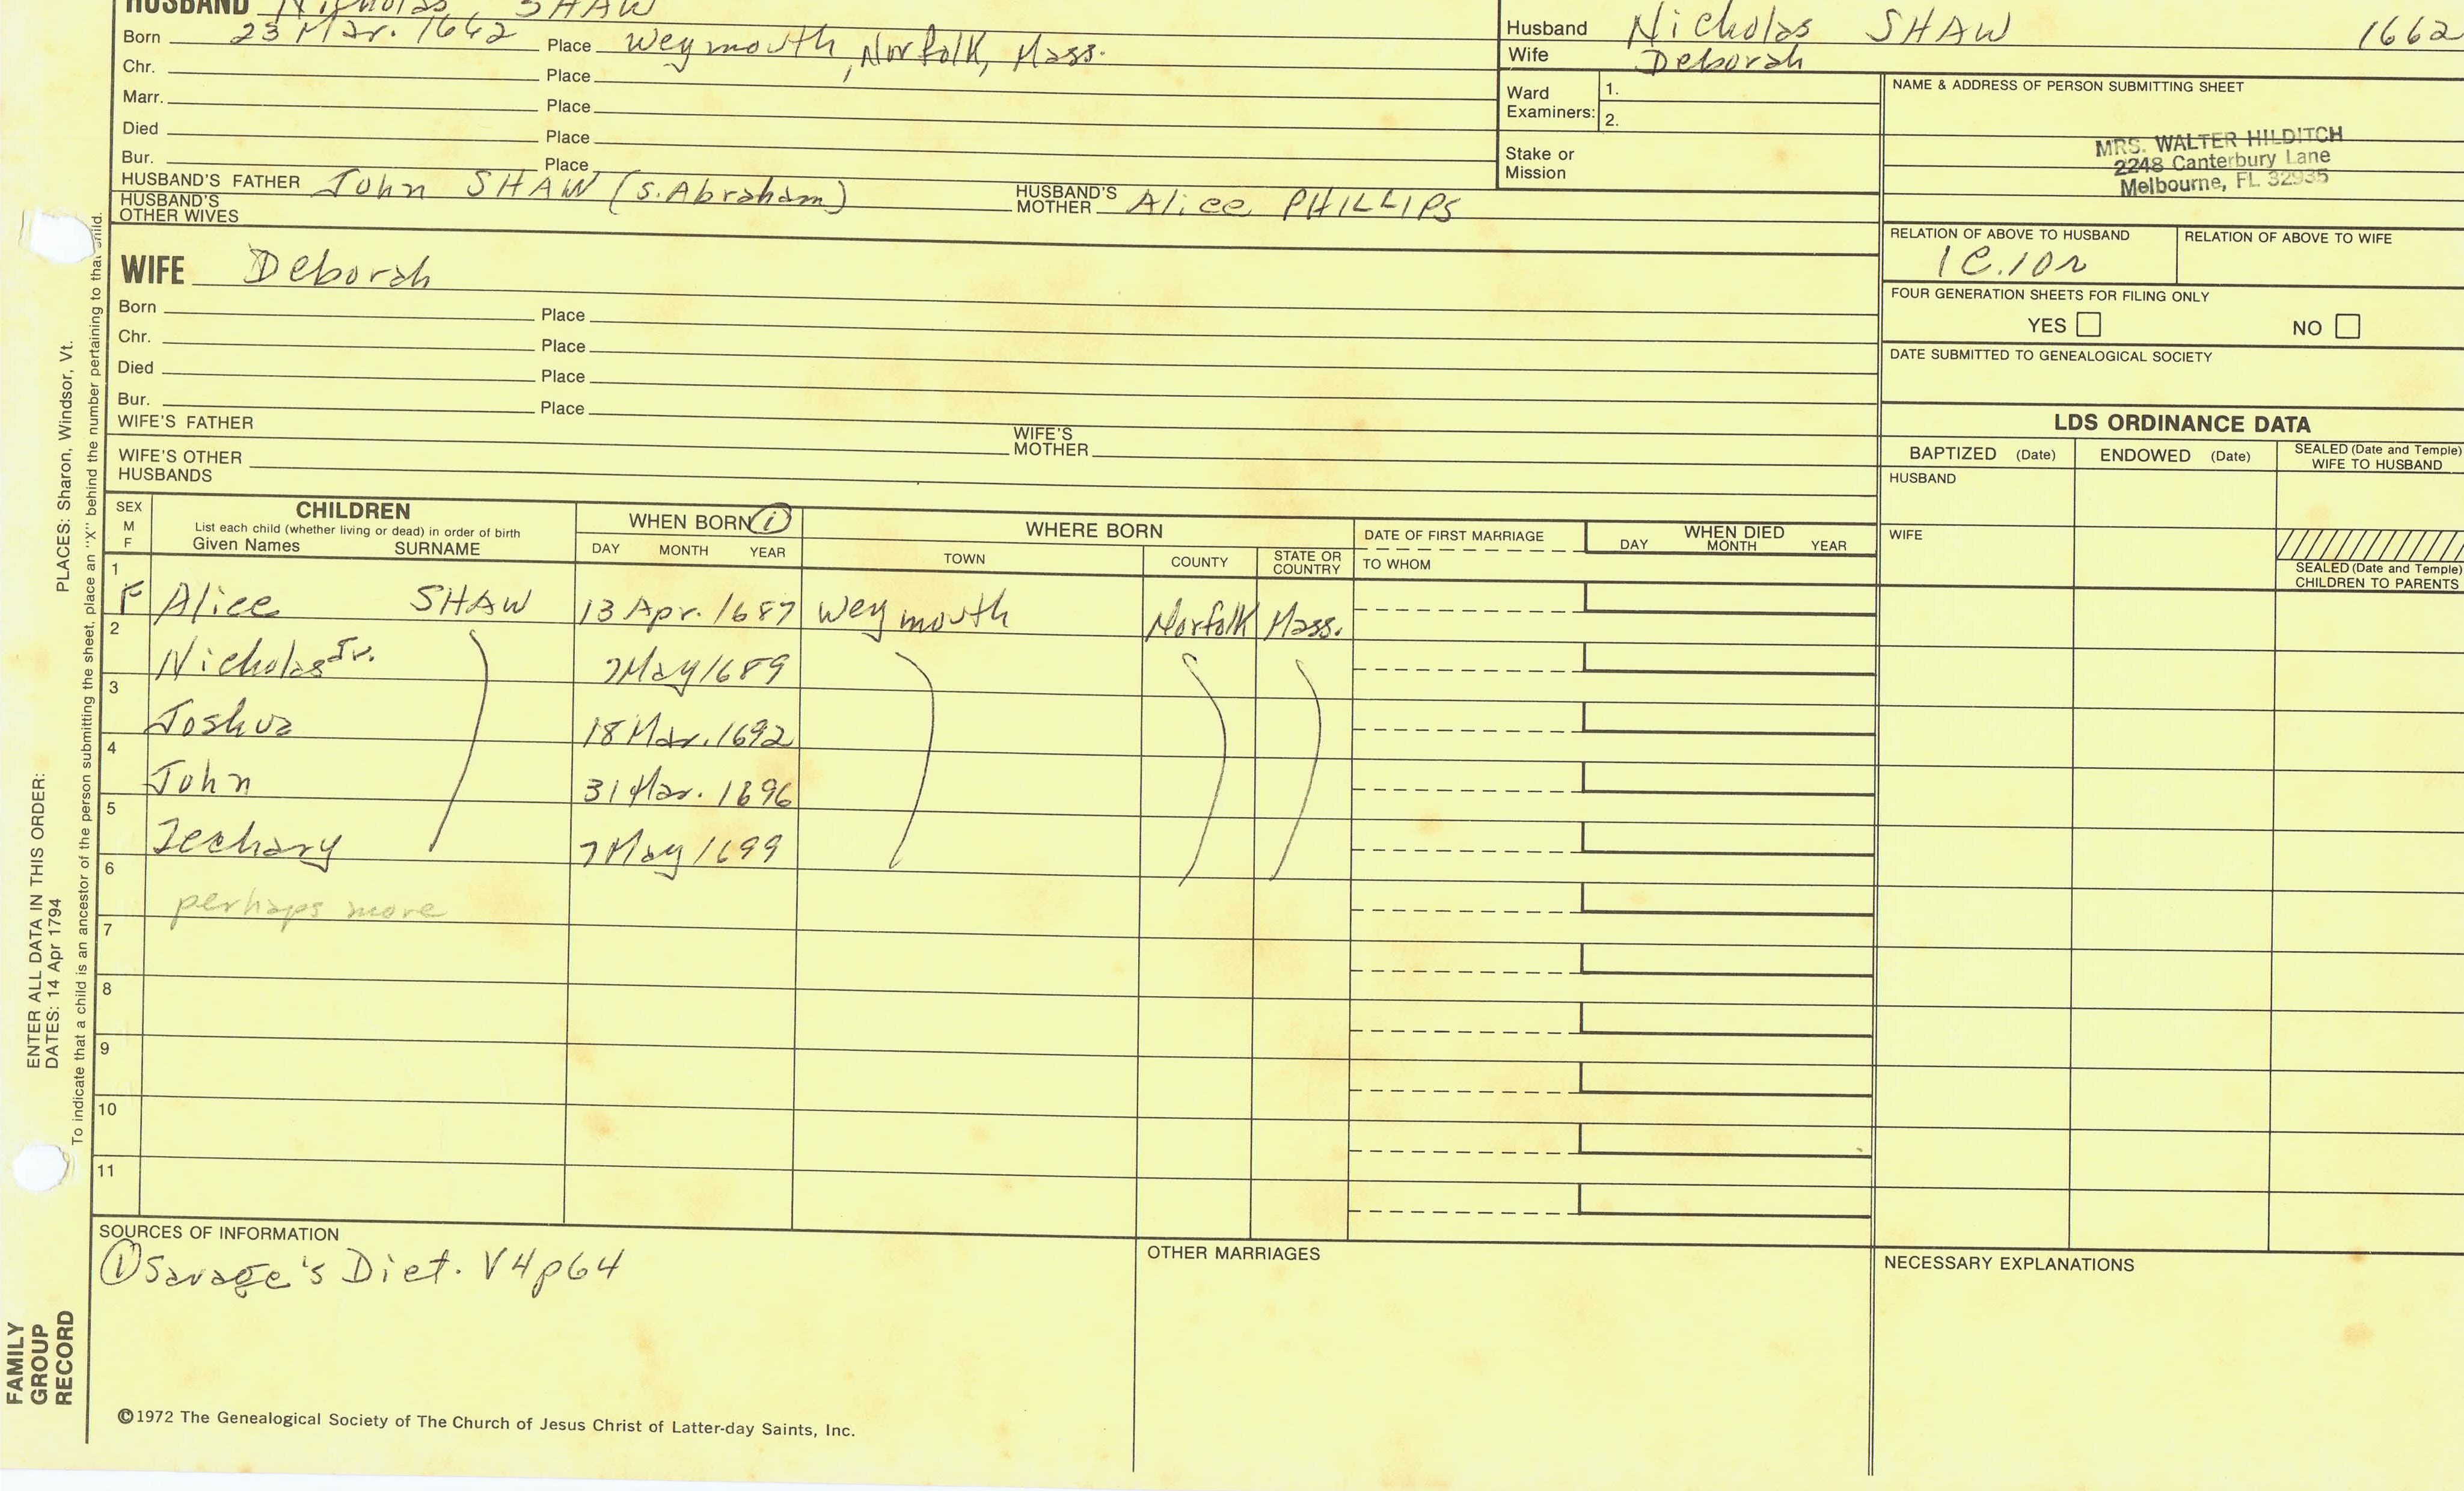 HUSBAND Nicholas SHAW
Born 23 Mar. 1662 Place Weymouth, Norfolk, Mass.
Chr. Place
Marr. Place
Died Place
Bur. Place
HUSBAND'S FATHER John SHAW (s. Abraham) HUSBAND'S MOTHER Alice PHILLIPS
HUSBAND'S OTHER WIVES
Husband Nicholas SHAW 1662
Wife Deborah
Ward Examiners: 1.
2.
Stake or Mission
NAME & ADDRESS OF PERSON SUBMITTING SHEET
MRS. WALTER HILDITCH
2248 Canterbury Lane
Melbourne, FL 32935
RELATION OF ABOVE TO HUSBAND RELATION OF ABOVE TO WIFE
1C.10r
FOUR GENERATION SHEETS FOR FILING ONLY
YES NO
DATE SUBMITTED TO GENEALOGICAL SOCIETY
WIFE Deborah
Born Place
Chr. Place
Died Place
Bur. Place
WIFE'S FATHER WIFE'S MOTHER
WIFE'S OTHER HUSBANDS
LDS ORDINANCE DATA
BAPTIZED (Date) ENDOWED (Date) SEALED (Date and Temple) WIFE TO HUSBAND
HUSBAND
WIFE
SEALED (Date and Temple) CHILDREN TO PARENTS
SEX M F
CHILDREN
List each child (whether living or dead) in order of birth
Given Names SURNAME
WHEN BORN 1
DAY MONTH YEAR
WHERE BORN
TOWN COUNTY STATE OR COUNTRY
DATE OF FIRST MARRIAGE
TO WHOM
WHEN DIED
DAY MONTH YEAR
1 F Alice SHAW 13 Apr. 1687 Weymouth Norfolk Mass.
2 Nicholas Jr. 7 May 1689
3 Joshua 18 Mar. 1692
4 John 31 Mar. 1696
5 Zechary 7 May 1699
6 perhaps more
7
8
9
10
11
SOURCES OF INFORMATION
1 Savage's Dict. V4p64
OTHER MARRIAGES
NECESSARY EXPLANATIONS
©1972 The Genealogical Society of The Church of Jesus Christ of Latter-day Saints, Inc.
FAMILY GROUP RECORD
ENTER ALL DATA IN THIS ORDER:
DATES: 14 Apr 1794 PLACES: Sharon, Windsor, Vt.
To indicate that a child is an ancestor of the person submitting the sheet, place an "X" behind the number pertaining to that child.